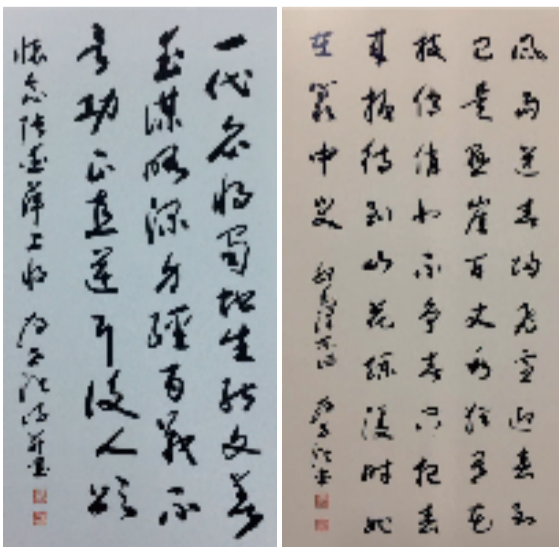 一代名将蜀地生能文善
武谋略深身经百战不
言功正直行后人颂
怀念张爱萍上将
风雨送春归飞雪迎春到
已是悬崖百丈冰犹有花
枝俏俏也不争春只把春
来报待到山花烂漫时她
在丛中笑
毛泽东词